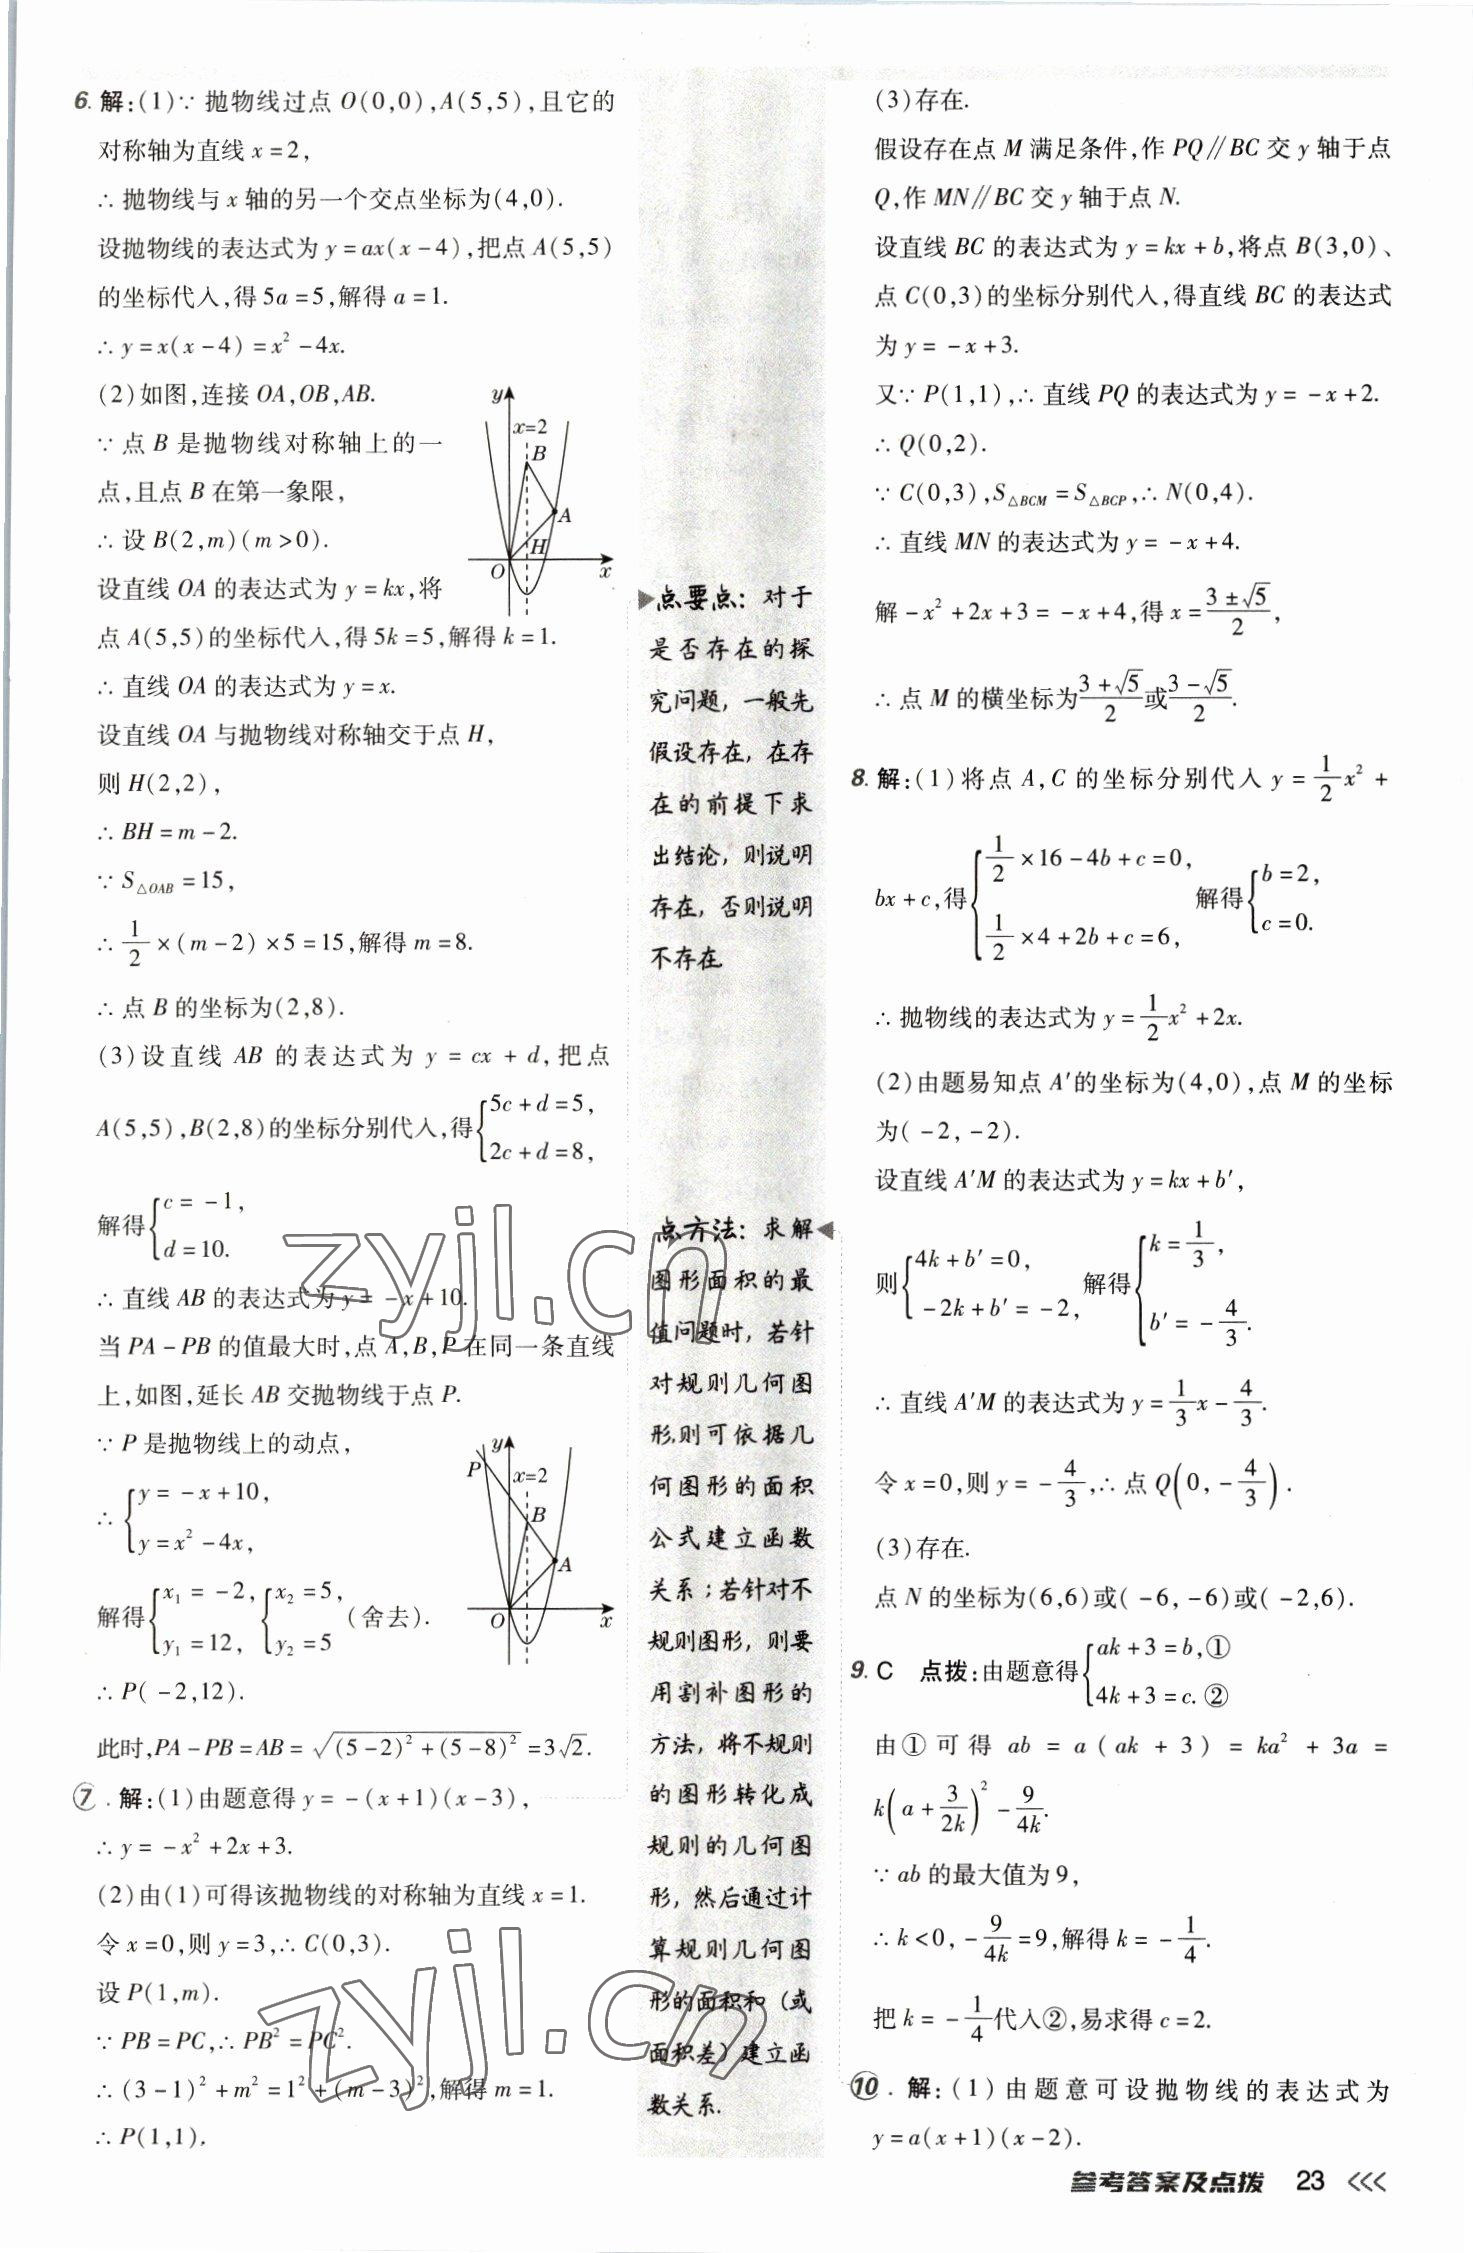 6. 解:(1)∵ 抛物线过点 O(0,0),A(5,5),且它的
对称轴为直线 x=2,
∴ 抛物线与 x 轴的另一个交点坐标为(4,0).
设抛物线的表达式为 y=ax(x-4),把点 A(5,5)
的坐标代入,得 5a=5,解得 a=1.
∴ y=x(x-4)=x²-4x.
(2)如图,连接 OA,OB,AB.
∵ 点 B 是抛物线对称轴上的一
点,且点 B 在第一象限,
∴ 设 B(2,m)(m>0).
设直线 OA 的表达式为 y=kx,将
点 A(5,5)的坐标代入,得 5k=5,解得 k=1.
∴ 直线 OA 的表达式为 y=x.
设直线 OA 与抛物线对称轴交于点 H,
则 H(2,2),
∴ BH=m-2.
∵ S△OAB=15,
∴ 1/2×(m-2)×5=15,解得 m=8.
∴ 点 B 的坐标为(2,8).
y
x=2
B
A
H
O
x
(3)设直线 AB 的表达式为 y=cx+d,把点
A(5,5),B(2,8)的坐标分别代入,得{5c+d=5,
2c+d=8,
解得{c=-1,
d=10.
∴ 直线 AB 的表达式为 y=-x+10.
当 PA-PB 的值最大时,点 A,B,P 在同一条直线
上,如图,延长 AB 交抛物线于点 P.
∵ P 是抛物线上的动点,
∴ {y=-x+10,
y=x²-4x,
解得{x₁=-2, {x₂=5,
y₁=12, y₂=5 (舍去).
∴ P(-2,12).
y
P
x=2
B
A
O
x
此时,PA-PB=AB=√((5-2)²+(5-8)²)=3√2.
⑦. 解:(1)由题意得 y=-(x+1)(x-3),
∴ y=-x²+2x+3.
(2)由(1)可得该抛物线的对称轴为直线 x=1.
令 x=0,则 y=3,∴ C(0,3).
设 P(1,m).
∵ PB=PC,∴ PB²=PC².
∴ (3-1)²+m²=1²+(m-3)²,解得 m=1.
∴ P(1,1).
点要点：对于
是否存在的探
究问题，一般先
假设存在，在存
在的前提下求
出结论，则说明
存在，否则说明
不存在.
点方法：求解
图形面积的最
值问题时，若针
对规则几何图
形,则可依据几
何图形的面积
公式建立函数
关系；若针对不
规则图形，则要
用割补图形的
方法，将不规则
的图形转化成
规则的几何图
形，然后通过计
算规则几何图
形的面积和（或
面积差）建立函
数关系.
(3)存在.
假设存在点 M 满足条件,作 PQ∥BC 交 y 轴于点
Q,作 MN∥BC 交 y 轴于点 N.
设直线 BC 的表达式为 y=kx+b,将点 B(3,0)、
点 C(0,3)的坐标分别代入,得直线 BC 的表达式
为 y=-x+3.
又∵ P(1,1),∴ 直线 PQ 的表达式为 y=-x+2.
∴ Q(0,2).
∵ C(0,3),S△BCM=S△BCP,∴ N(0,4).
∴ 直线 MN 的表达式为 y=-x+4.
解 -x²+2x+3=-x+4,得 x=(3±√5)/2,
∴ 点 M 的横坐标为(3+√5)/2或(3-√5)/2.
8. 解:(1)将点 A,C 的坐标分别代入 y=1/2x²+
bx+c,得{1/2×16-4b+c=0,
1/2×4+2b+c=6, 解得{b=2,
c=0.
∴ 抛物线的表达式为 y=1/2x²+2x.
(2)由题易知点 A′的坐标为(4,0),点 M 的坐标
为(-2,-2).
设直线 A′M 的表达式为 y=kx+b′,
则{4k+b′=0,
-2k+b′=-2, 解得{k=1/3,
b′=-4/3.
∴ 直线 A′M 的表达式为 y=1/3x-4/3.
令 x=0,则 y=-4/3,∴ 点 Q(0,-4/3).
(3)存在.
点 N 的坐标为(6,6)或(-6,-6)或(-2,6).
9. C 点拨:由题意得{ak+3=b,①
4k+3=c.②
由①可得 ab=a(ak+3)=ka²+3a=
k(a+3/2k)²-9/4k.
∵ ab 的最大值为 9,
∴ k<0,-9/4k=9,解得 k=-1/4.
把 k=-1/4代入②,易求得 c=2.
⑩. 解:(1)由题意可设抛物线的表达式为
y=a(x+1)(x-2).
参考答案及点拨 23 <<<
zyjl.cn
zyjl.cn